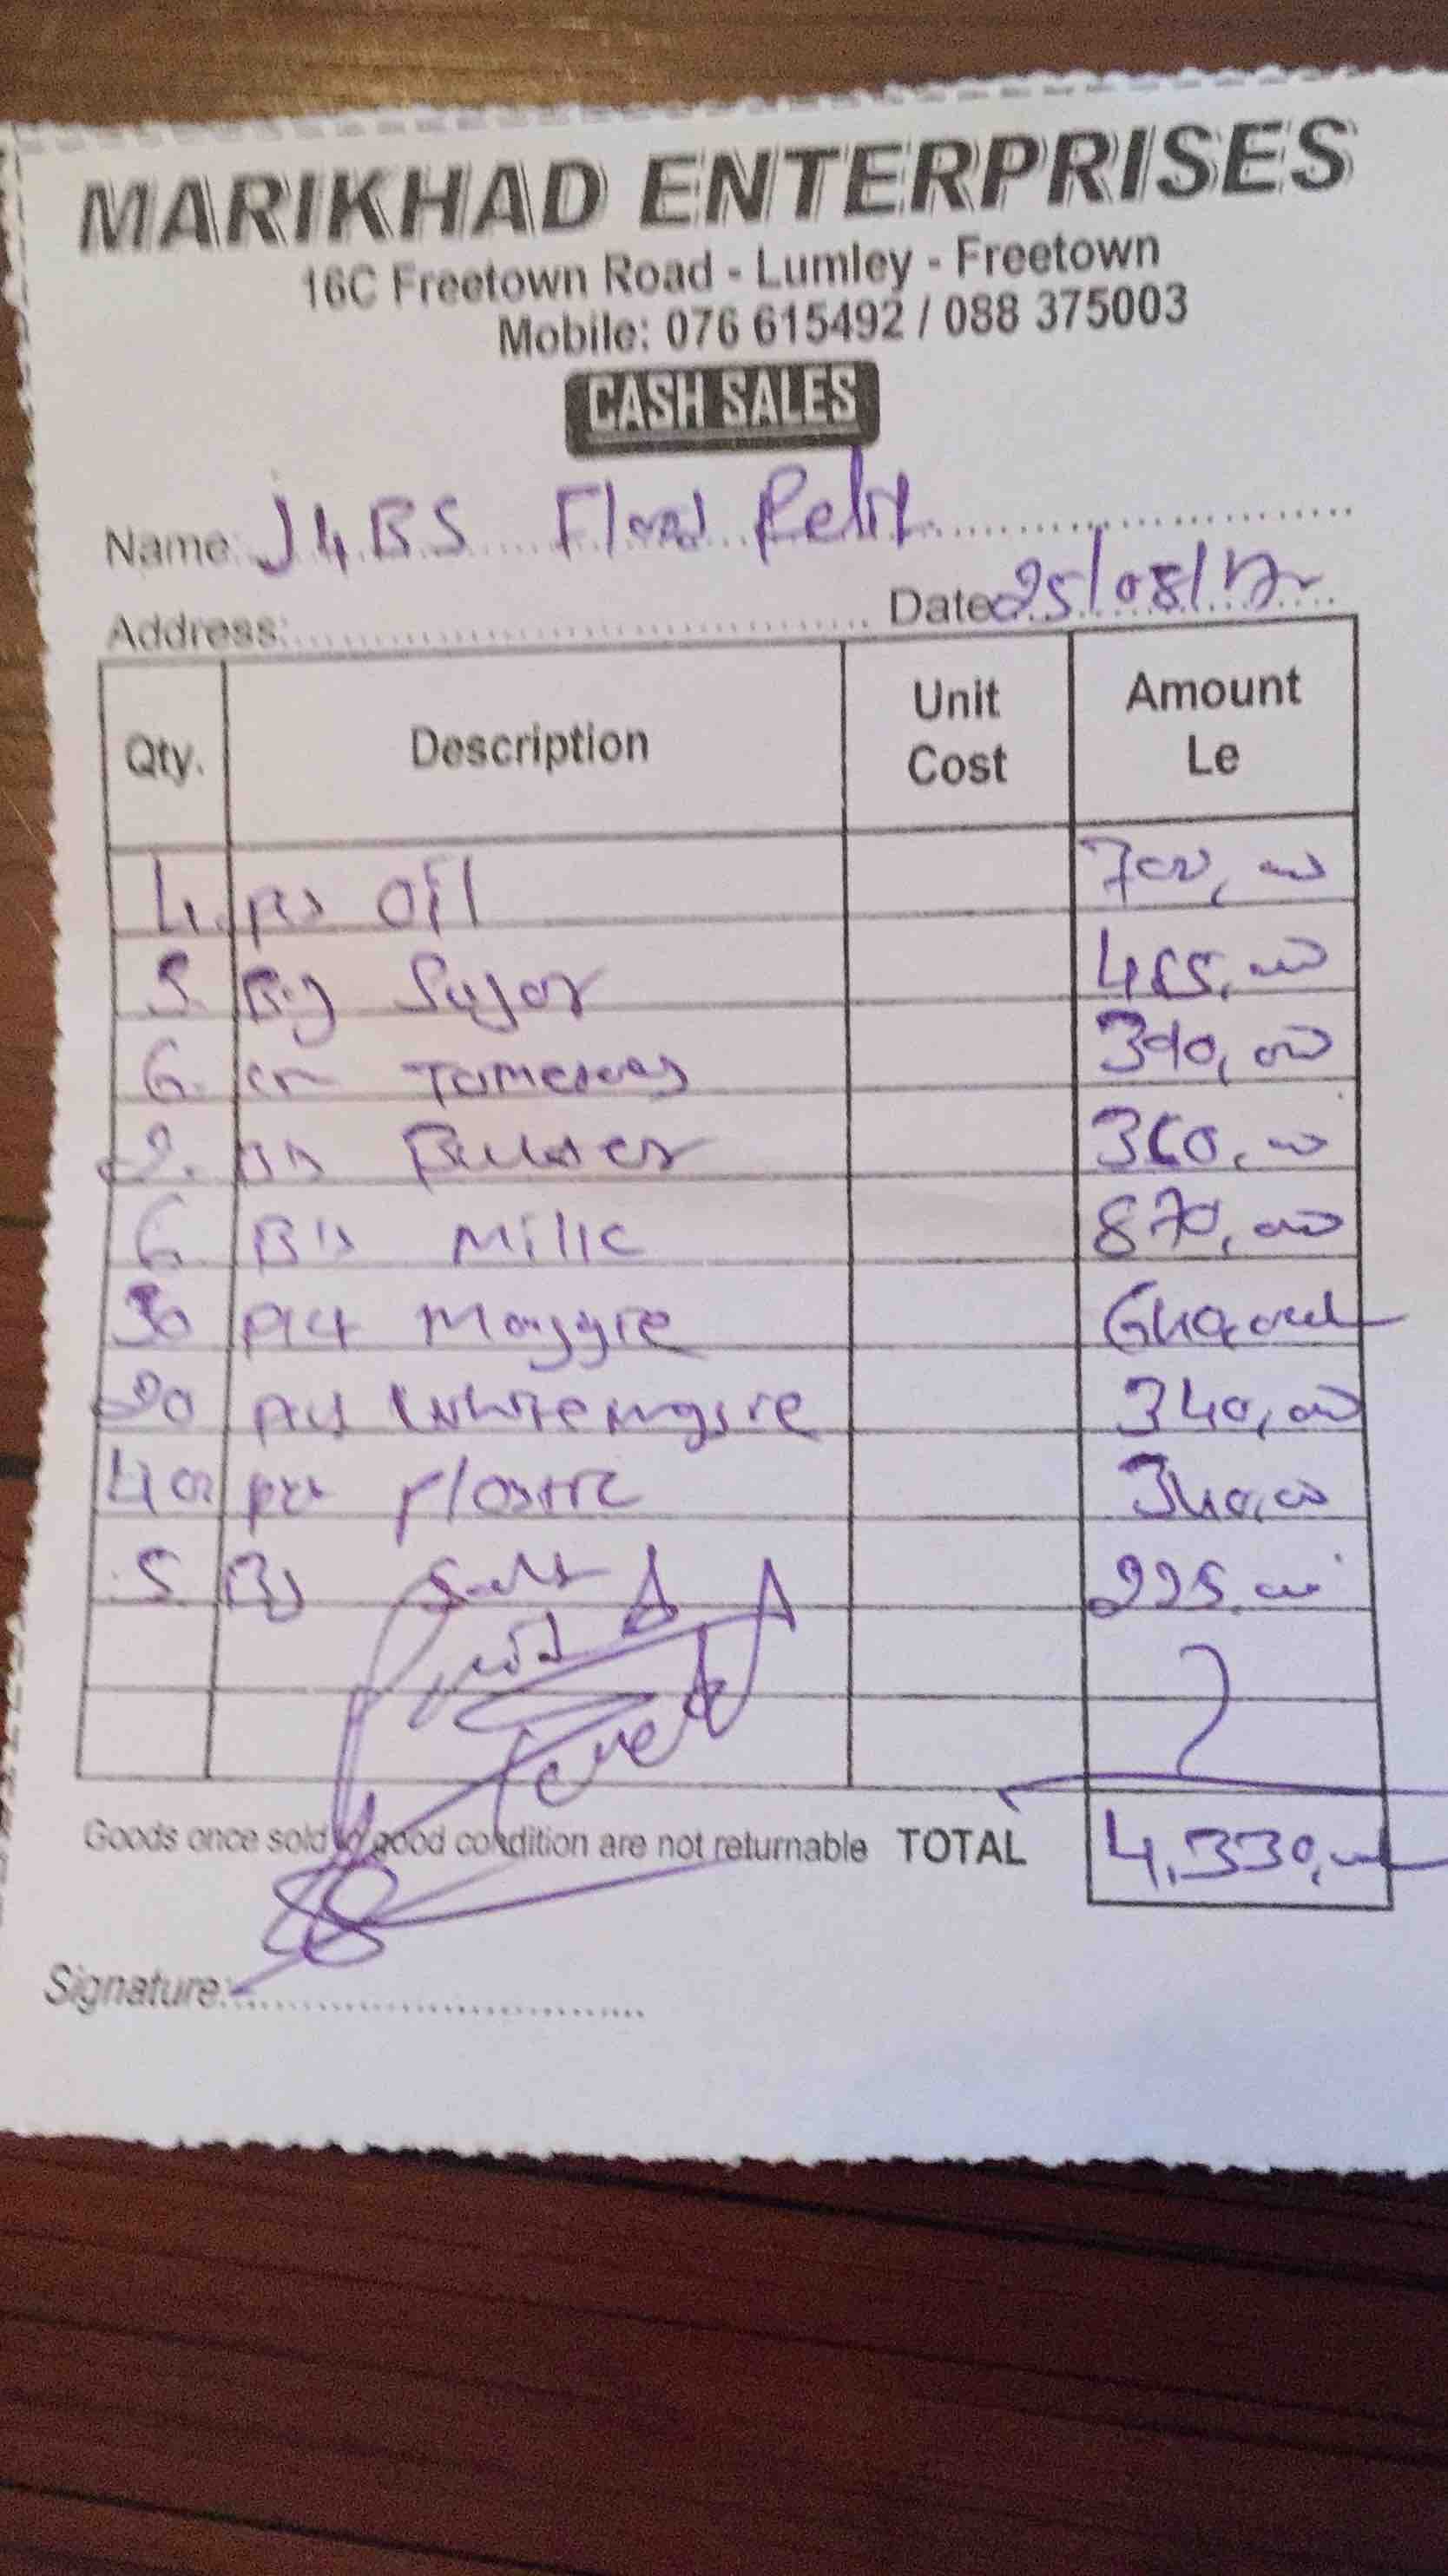 MARIKHAD ENTERPRISES
16C Freetown Road - Lumley - Freetown
Mobile: 076 615492 / 088 375003
CASH SALES
Name: J4BS Flood Relif
Address: Date 25/08/17
Qty. Description Unit Cost Amount Le
4. Oil 700,000
5. Bg Sugar 465,000
6. 390,000
2. Butter 360,000
6 Milk 870,000
30 pkt Maggie 640,000
20 pkt White magie 340,000
40 plastic 340,000
5 Bg Salt 225,000
Goods once sold in good condition are not returnable TOTAL 4,330,000
Signature: